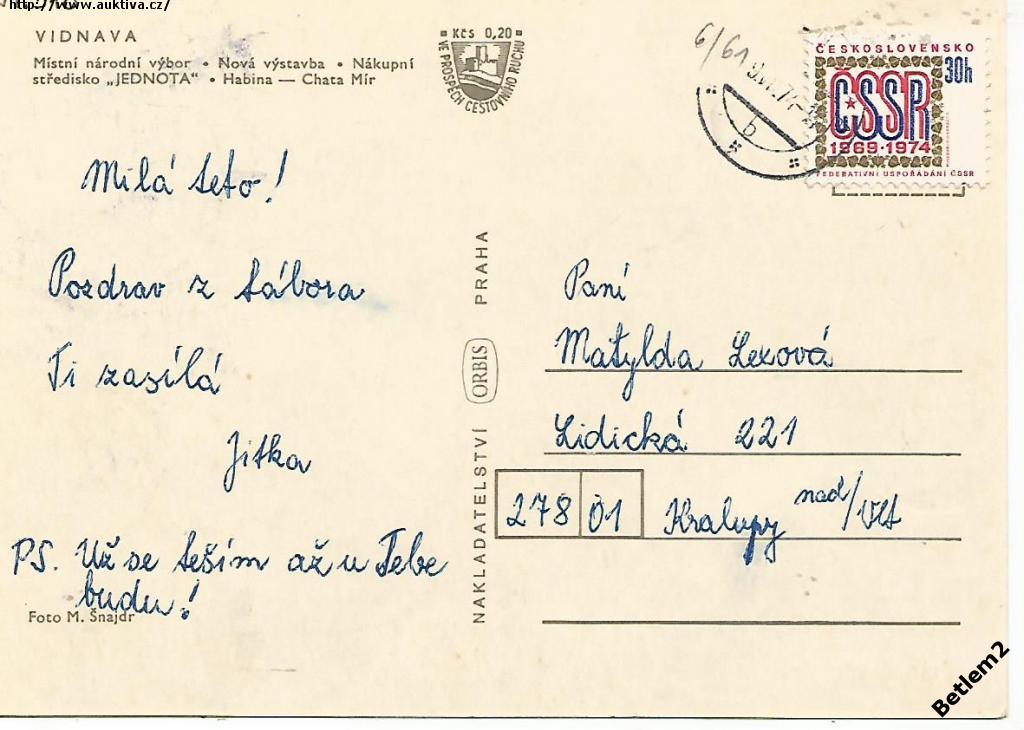 http://www.auktiva.cz/
VIDNAVA
Místní národní výbor • Nová výstavba • Nákupní
středisko „JEDNOTA“ • Habina — Chata Mír
Kčs 0,20
VE PROSPĚCH CESTOVNÍHO RUCHU
6/61
b
ČESKOSLOVENSKO
30h
ČSSR
1969·1974
FEDERATIVNÍ USPOŘÁDÁNÍ ČSSR
Milá teto!
Pozdrav z tábora
Ti zasílá
Jitka
PS. Už se těším až u Tebe
budu!
Foto M. Šnajdr
NAKLADATELSTVÍ ORBIS PRAHA
Paní
Matylda Lexová
Lidická 221
278 01 Kralupy nad/Vlt
Betlem2